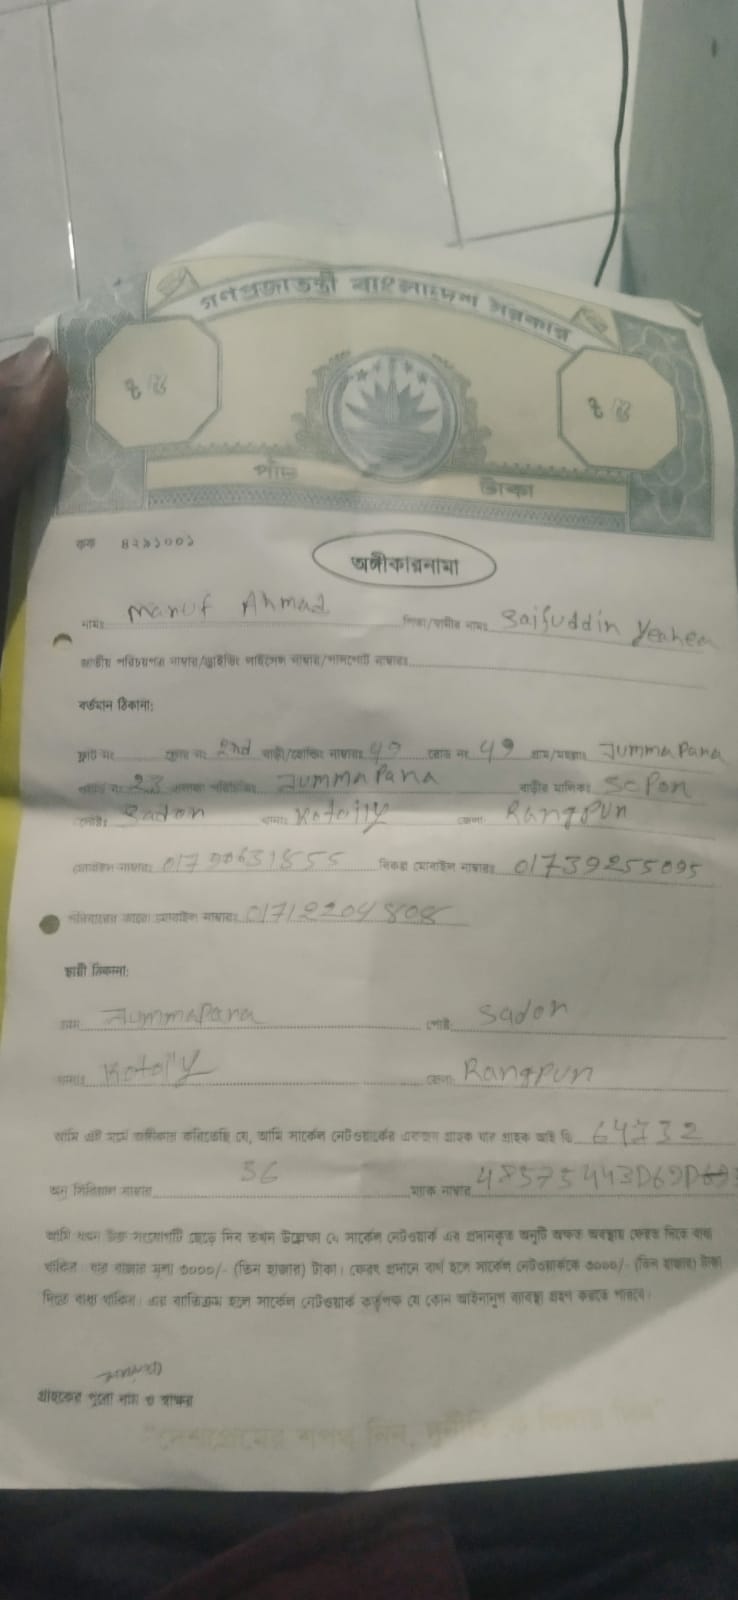 গণপ্রজাতন্ত্রী বাংলাদেশ সরকার
পাঁচ টাকা
কক ৪২৯১০০১
অঙ্গীকারনামা
নামঃ Maruf Ahmad পিতা/স্বামীর নামঃ Saifuddin Yeahea
জাতীয় পরিচয়পত্র নাম্বার/ড্রাইভিং লাইসেন্স নাম্বার/পাসপোর্ট নাম্বারঃ
বর্তমান ঠিকানা:
ফ্ল্যাট নং 2nd বাড়ী/হোল্ডিং নাম্বারঃ 49 রোড নং 49 গ্রাম/মহল্লাঃ Jumma Para
23 Jumma Para বাড়ীর মালিকঃ
পোষ্টঃ Sador থানাঃ Kotolly জেলাঃ Rangpur
মোবাইল নাম্বারঃ বিকাশ মোবাইল নাম্বারঃ 01739255095
পরিবারের অন্যান্য মোবাইল নাম্বারঃ 01712204808
স্থায়ী ঠিকানা:
গ্রামঃ Jummapara পোষ্টঃ Sador
থানাঃ Kotolly জেলাঃ Rangpur
আমি এই মর্মে অঙ্গীকার করিতেছি যে, আমি সার্কেল নেটওয়ার্কের একজন গ্রাহক যার গ্রাহক আই ডি 64732
অনু সিরিয়াল নাম্বার ম্যাক নাম্বার 48575443D69D
আমি যখন উক্ত সংযোগটি ছেড়ে দিব তখন উল্লেখ্য যে সার্কেল নেটওয়ার্ক এর প্রদানকৃত অনুটি অক্ষত অবস্থায় ফেরত দিতে বাধ্য
থাকিব। যার বাজার মূল্য ৩০০০/- (তিন হাজার) টাকা। ফেরৎ প্রদানে ব্যর্থ হলে সার্কেল নেটওয়ার্ককে ৩০০০/- (তিন হাজার) টাকা
দিতে বাধ্য থাকিব। এর ব্যতিক্রম হলে সার্কেল নেটওয়ার্ক কর্তৃপক্ষ যে কোন আইনানুগ ব্যবস্থা গ্রহন করতে পারবে।
গ্রাহকের পুরো নাম ও স্বাক্ষর
"দেশপ্রেমের শপথ নিন, দুর্নীতিকে বিদায় দিন"